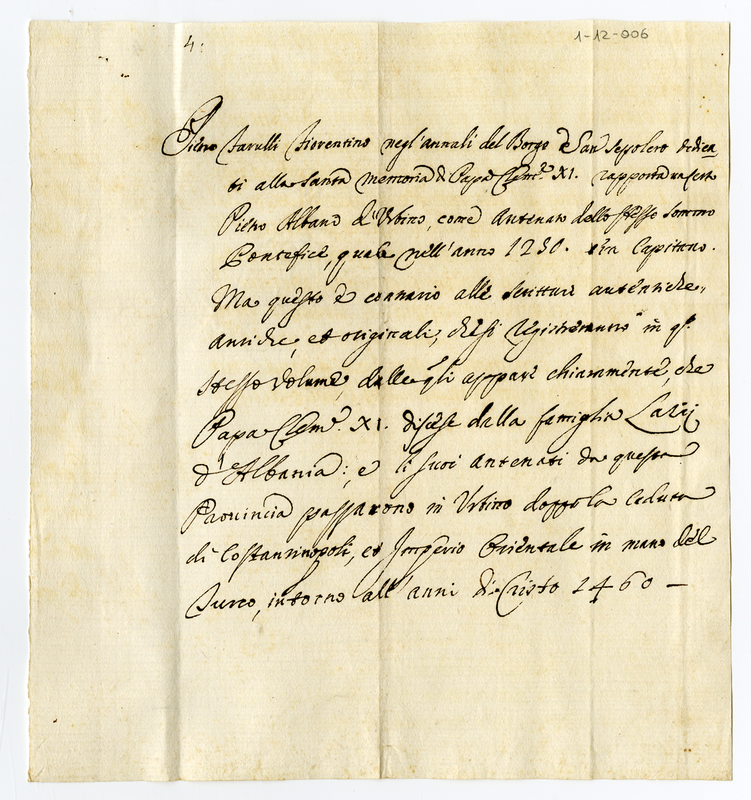 4.
1-12-006
Pietro Farulli Fiorentino negl'annali del Borgo e San Sepolcro dedica
ti alla Santa memoria di Papa Clem.e XI. rapporta un certo
Pietro Albano d'Urbino, come Antenato dello stesso sommo
Pontefice, quale nell'anno 1230. Capitano.
Ma questo è contrario alle scritture autentiche,
antiche, et originali, che si registreranno in q.
stesso Volume, dalle quali appare chiaramente, che
Papa Clem.e XI. discese dalla famiglia Lazij
d'Albania; e li suoi antenati da questa
Provincia passarono in Urbino doppo la caduta
di Costantinopoli, et Imperio Orientale in mano del
Turco, intorno all'anni di Cristo 1460 —